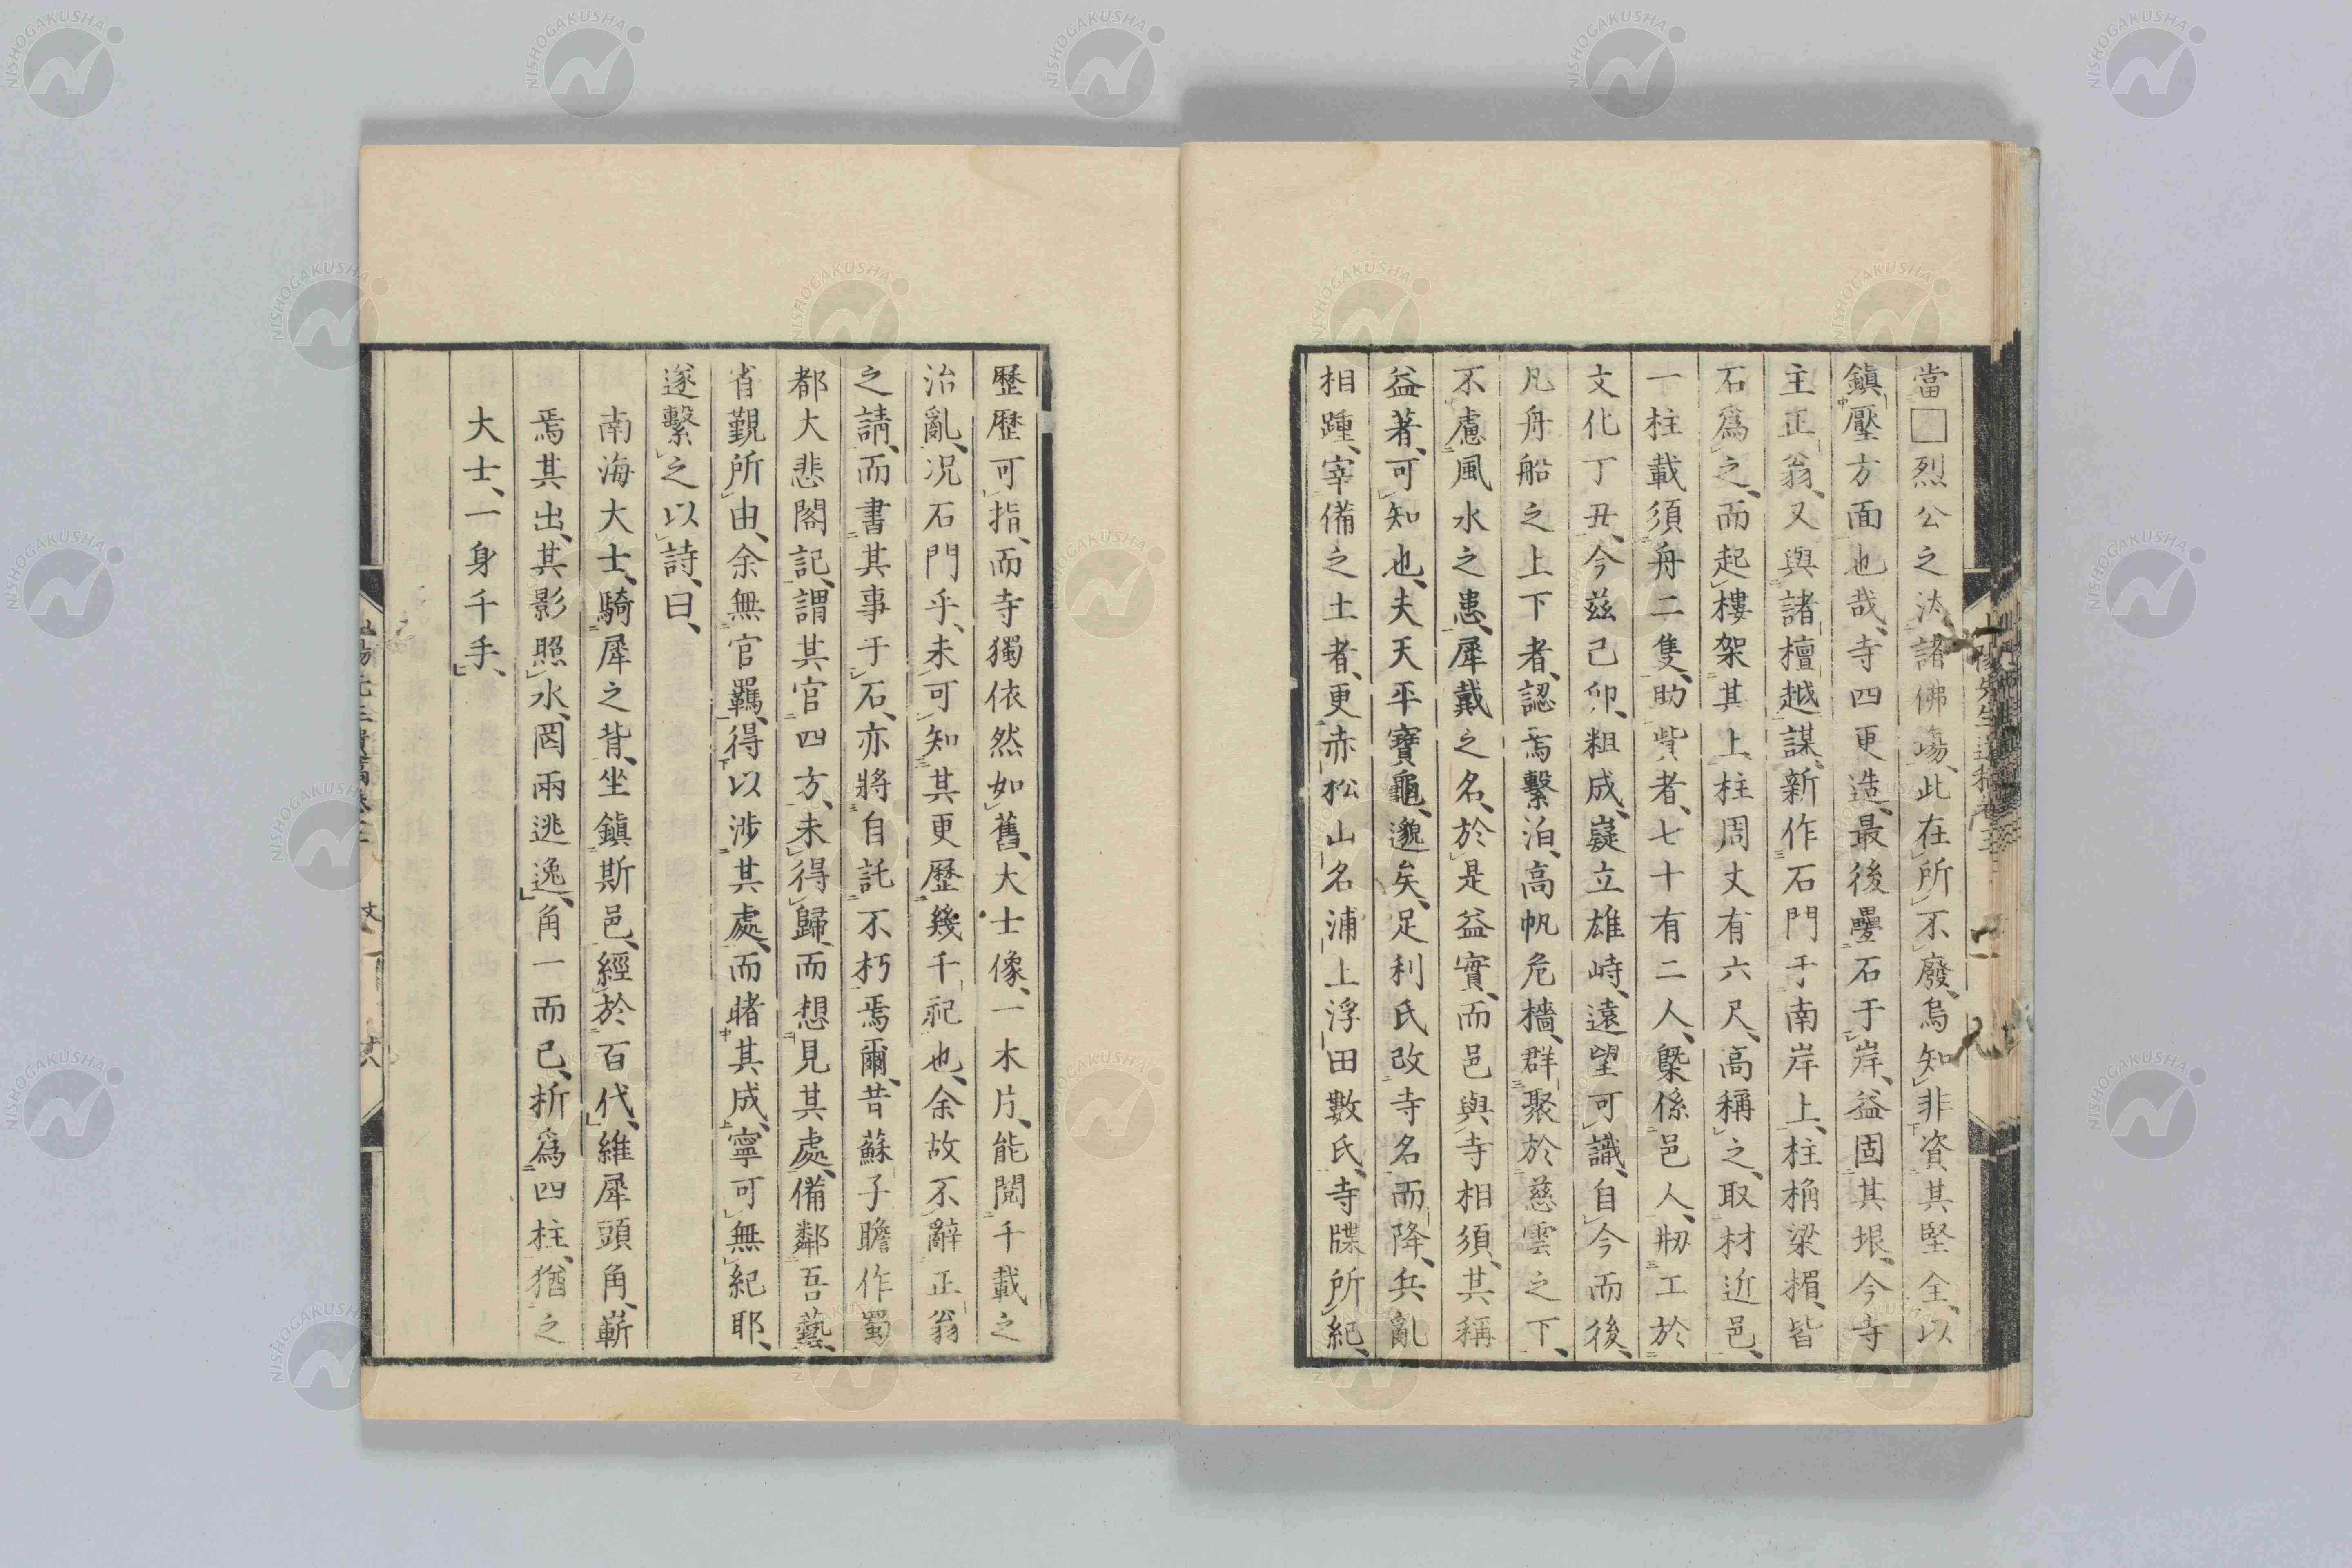 當□烈公之汰諸佛場、此在所不廢、烏知非資其堅全、以
鎮壓方面也哉、寺四更造、最後疊石于岸、益固其垠、今寺
主正翁、又與諸檀越謀、新作石門于南岸上、柱桷梁楣、皆
石爲之、而起樓架其上、柱周丈有六尺、高稱之、取材近邑、
一柱載須舟二隻、助貲者、七十有二人、槩係邑人、剏工於
文化丁丑、今茲己卯、粗成、嶷立雄峙、遠望可識、自今而後、
凡舟船之上下者、認焉繫泊、高帆危檣、群聚於慈雲之下、
不慮風水之患、犀戴之名、於是益實、而邑與寺相須、其稱
益著、可知也、夫天平寶龜、邈矣、足利氏改寺名而降、兵亂
相踵、宰備之土者、更赤松山名浦上浮田數氏、寺牒所紀、
歷歷可指、而寺獨依然如舊、大士像、一木片、能閱千載之
治亂、况石門乎、未可知其更歷幾千祀也、余故不辭正翁
之請、而書其事于石、亦將自託不朽焉爾、昔蘇子瞻作蜀
都大悲閣記、謂其官四方、未得歸、而想見其處、備鄰吾藝、
省覲所由、余無官羈、得以涉其處、而睹其成、寧可無紀耶、
遂繫之以詩、曰、
南海大士、騎犀之背、坐鎮斯邑、經於百代、維犀頭角、嶄
焉其出、其影照水、罔兩逃逸、角一而已、折爲四柱、猶之
大士、一身千手、